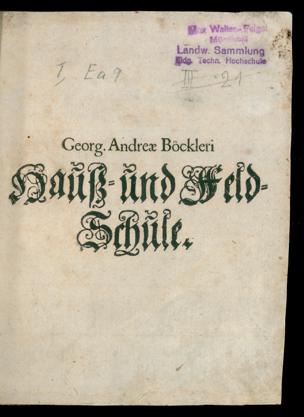 Max Walter-Feige
Landw. Sammlung
Eidg. Techn. Hochschule
I, Ea 9
III 21
Georg. Andreæ Böckleri
Hauß- und Feld-
Schule.